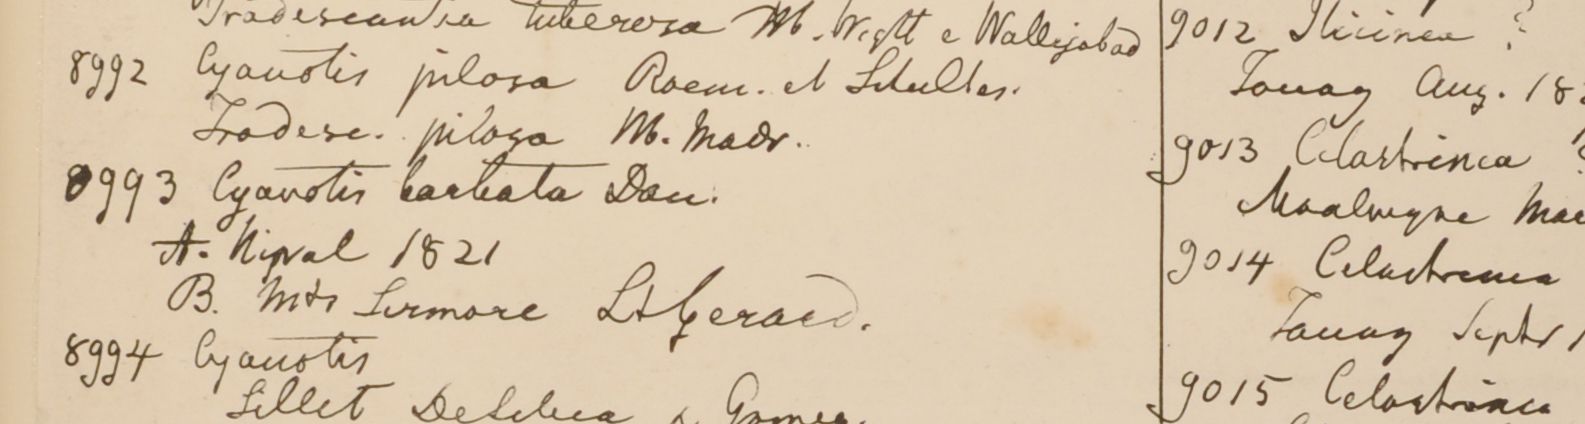 Tradescantia tuberosa Hb. Wight e Wallijabad
8992 Cyanotis pilosa Roem. et Schultes.
Tradesc. pilosa Hb. Madr.
8993 Cyanotis barbata Don.
A. Nipal 1821
B. Mts Sirmore Lt Gerard.
8994 Cyanotis
Sillet De Silva & Gomez.
9012 Ilicinea ?
Tavay Aug. 18
9013 Celastrinea ?
Moalmyne
9014 Celastrinea
Tavay Septr 1
9015 Celastrinea